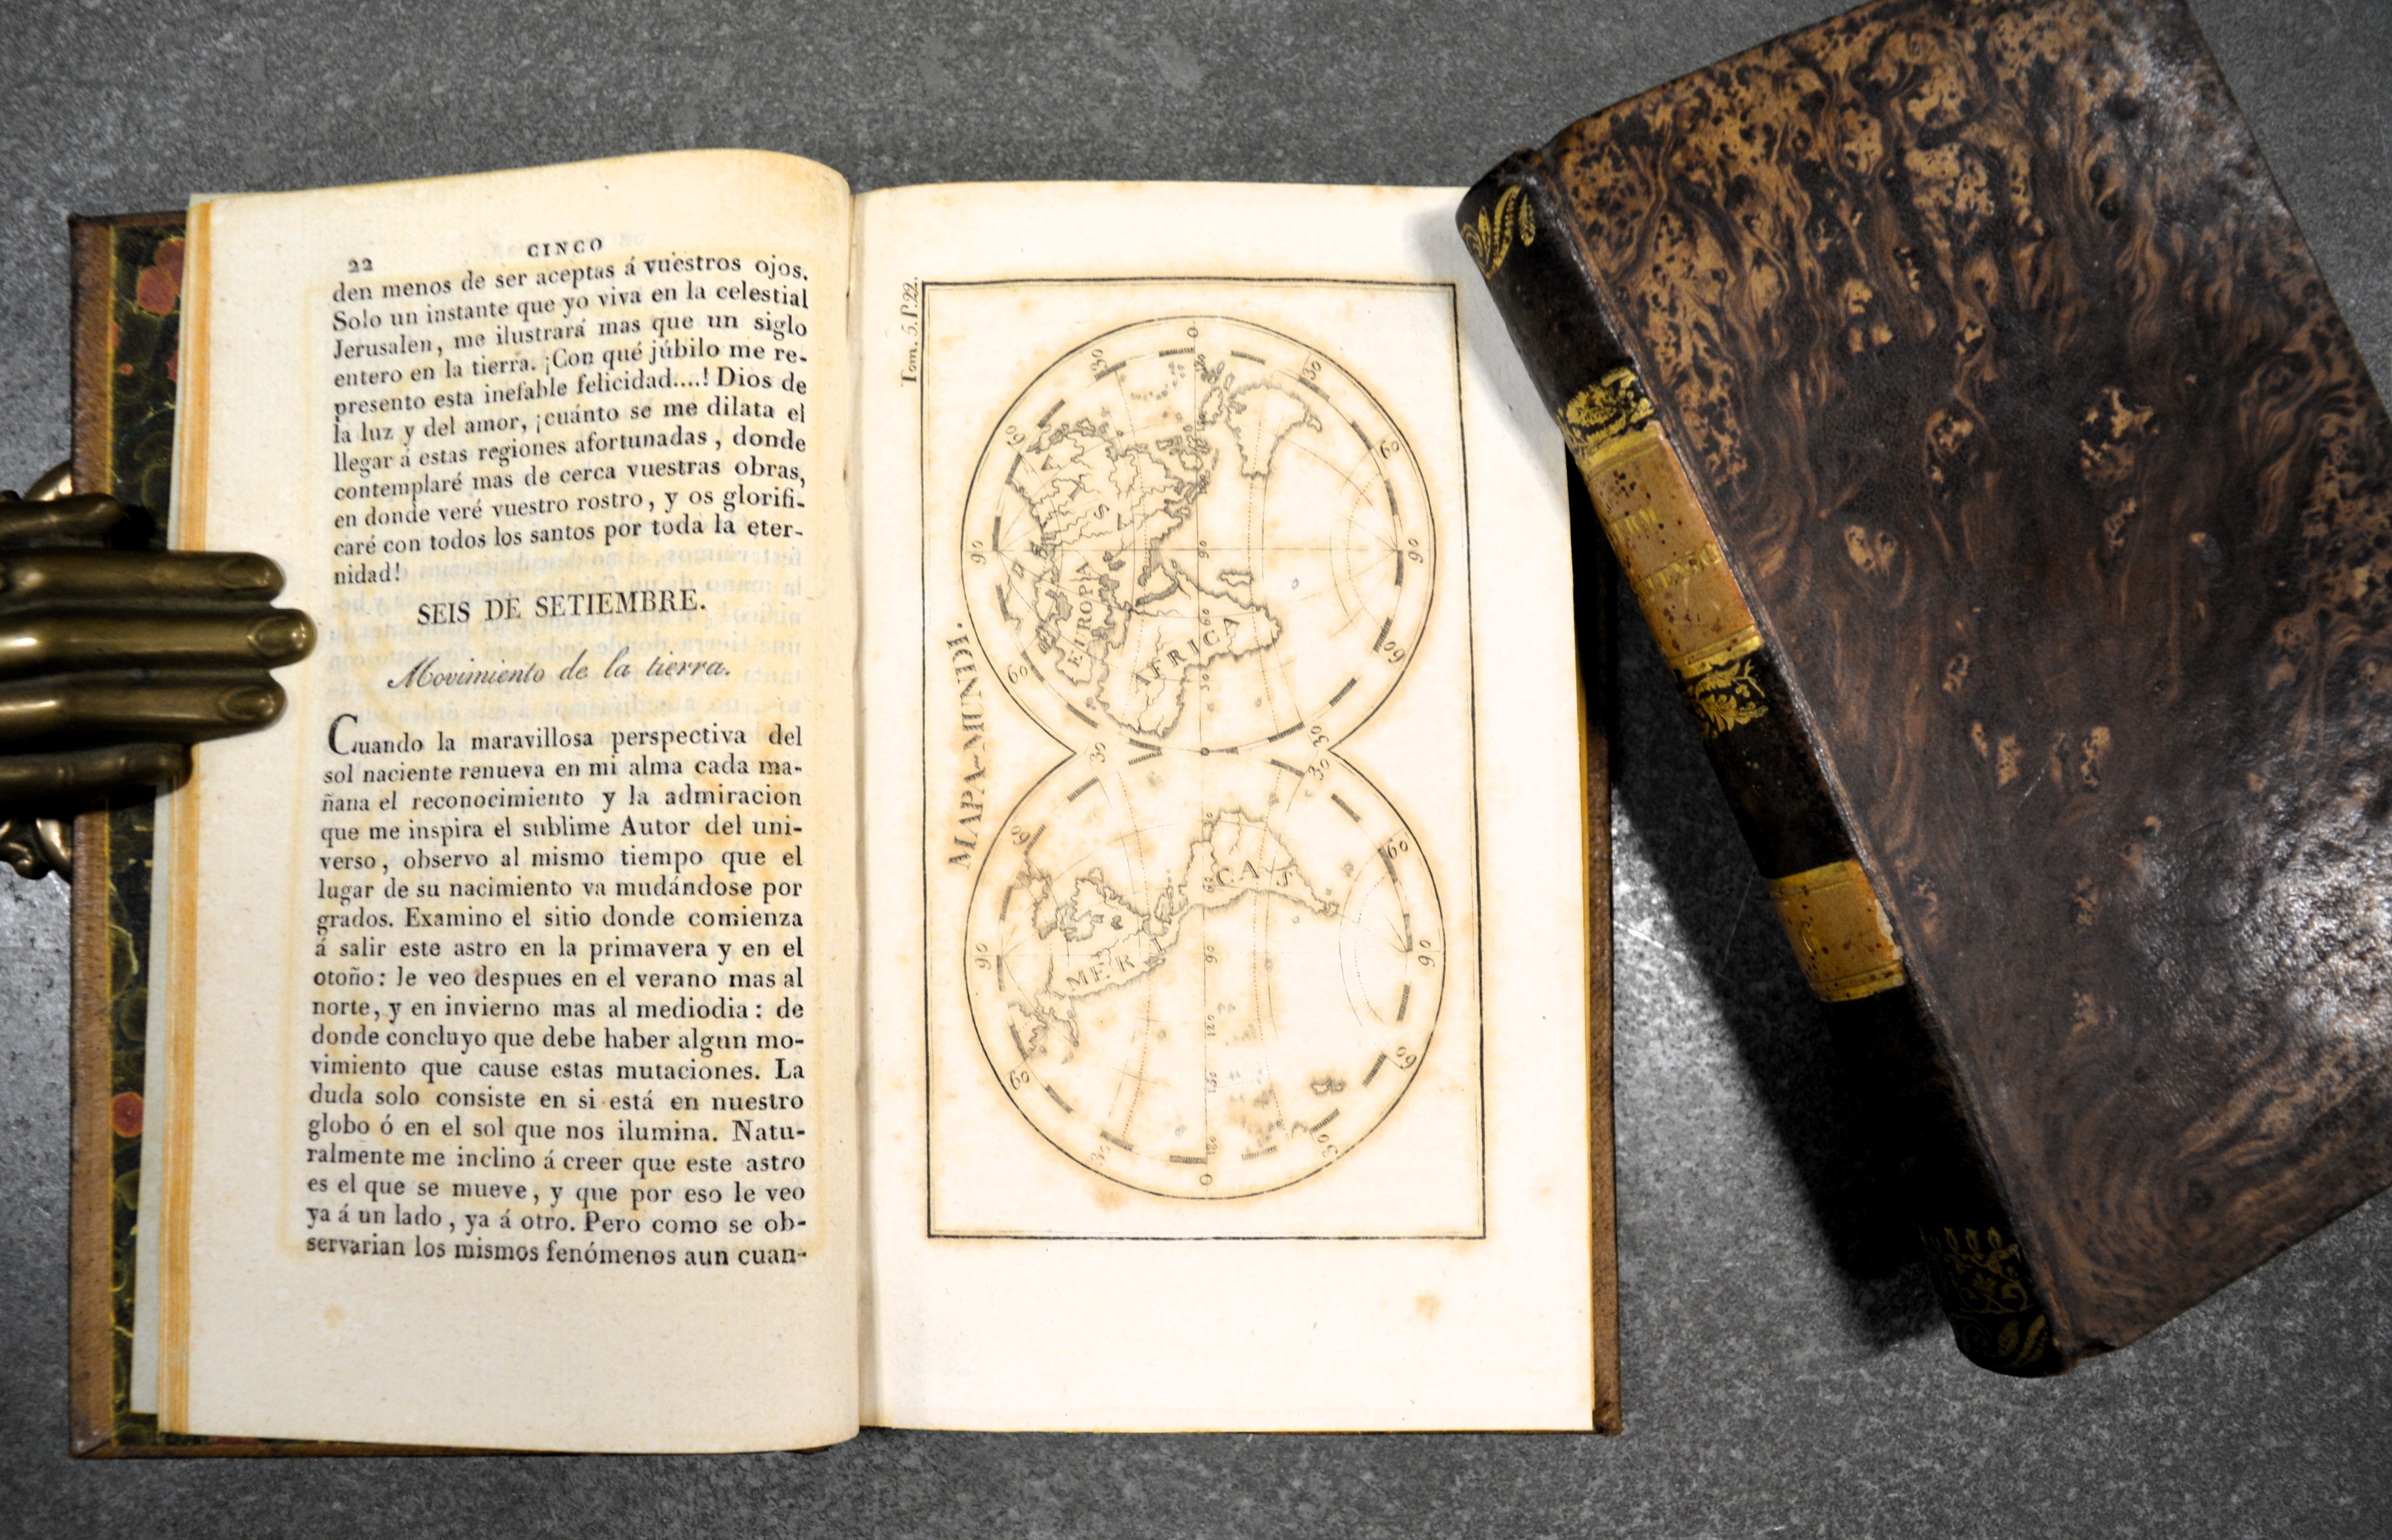 22 CINCO
den menos de ser aceptas á vuestros ojos.
Solo un instante que yo viva en la celestial
Jerusalen, me ilustrará mas que un siglo
entero en la tierra. ¡Con qué júbilo me re-
presento esta inefable felicidad....! Dios de
la luz y del amor, ¡cuánto se me dilata el
llegar á estas regiones afortunadas, donde
contemplaré mas de cerca vuestras obras,
en donde veré vuestro rostro, y os glorifi-
caré con todos los santos por toda la eter-
nidad!
SEIS DE SETIEMBRE.
Movimiento de la tierra.
Cuando la maravillosa perspectiva del
sol naciente renueva en mi alma cada ma-
ñana el reconocimiento y la admiracion
que me inspira el sublime Autor del uni-
verso, observo al mismo tiempo que el
lugar de su nacimiento va mudándose por
grados. Examino el sitio donde comienza
á salir este astro en la primavera y en el
otoño: le veo despues en el verano mas al
norte, y en invierno mas al mediodia: de
donde concluyo que debe haber algun mo-
vimiento que cause estas mutaciones. La
duda solo consiste en si está en nuestro
globo ó en el sol que nos ilumina. Natu-
ralmente me inclino á creer que este astro
es el que se mueve, y que por eso le veo
ya á un lado, ya á otro. Pero como se ob-
servarian los mismos fenómenos aun cuan-
Tom. 5. P. 22.
MAPA-MUNDI.
0
30
30
60
60
90
90
60
60
30
30
EUROPA
AFRICA
A S I A
60
60
90
90
60
60
30
30
0
90
120
150
180
A MER I CAS